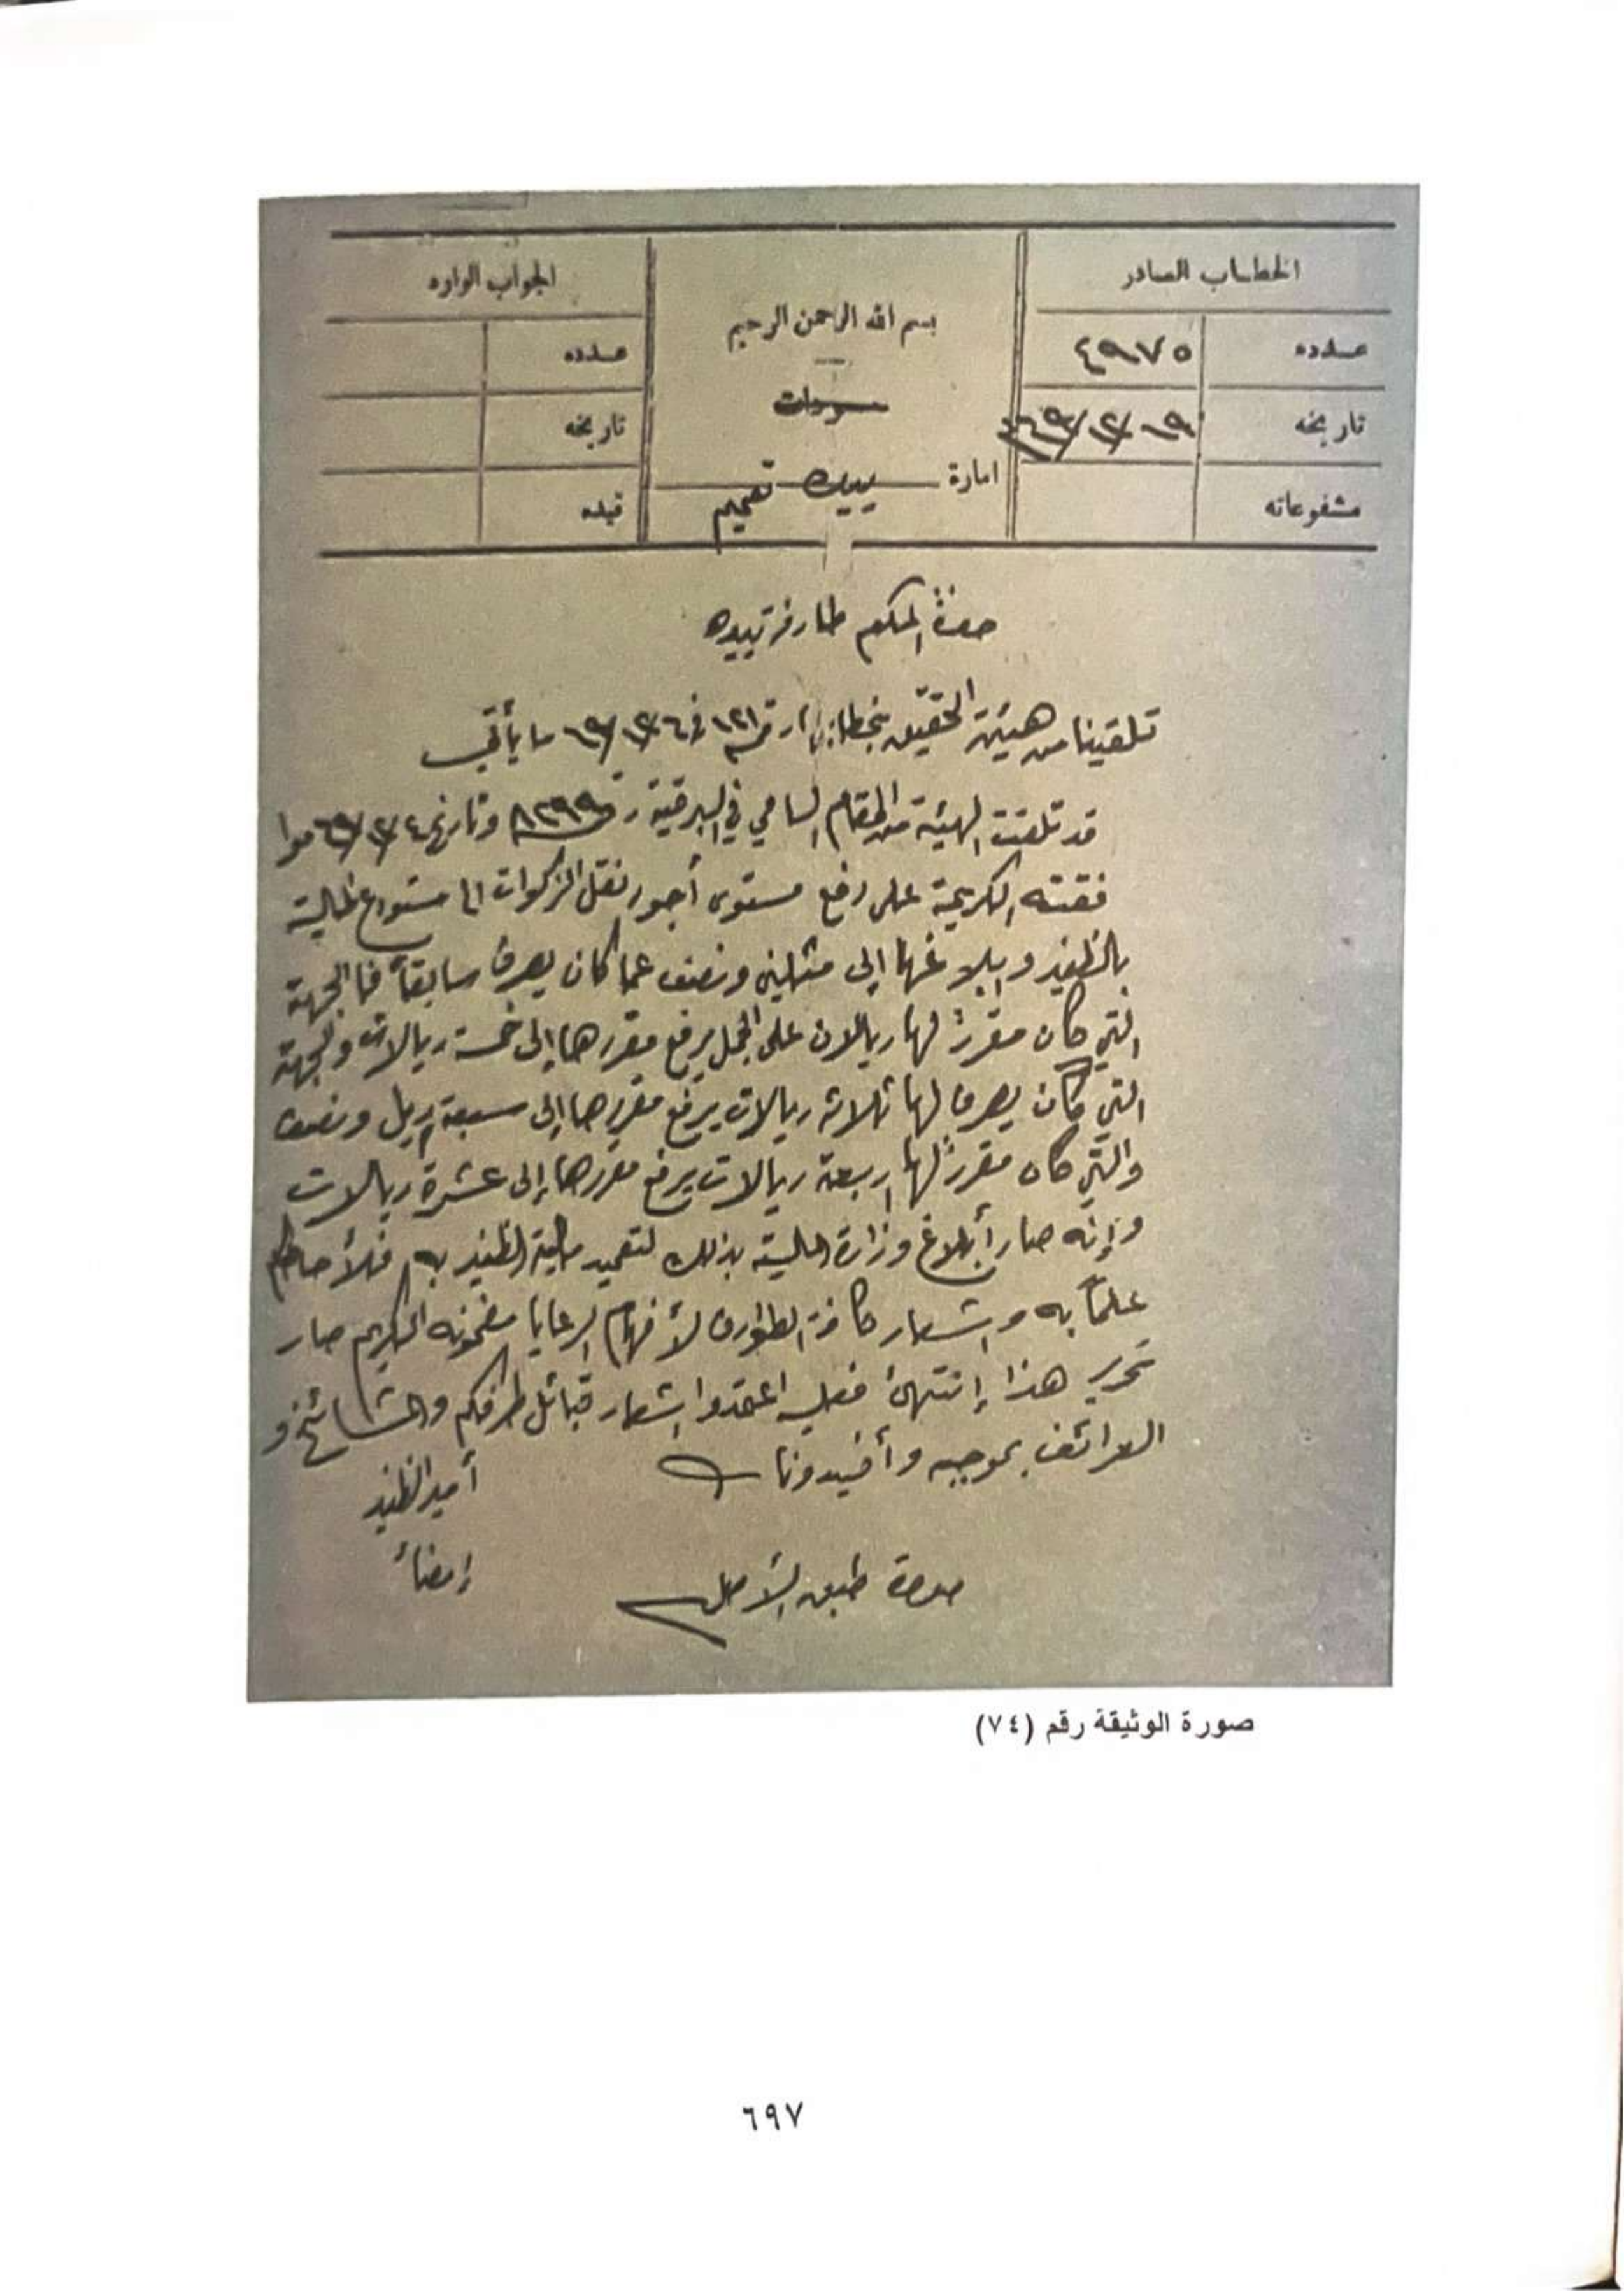 الخطاب الصادر
عدده ٤٩٧٥
تاريخه ١٩/١٢/
مشفوعاته
بسم الله الرحمن الرحيم
امارة تعميم
الجواب الوارد
عدده
تاريخه
قيده
حضرة المكرم طارفة
تلقينا من هيئة التحقيق بخطابها رقم ١٢١ في ٦/١٢/٦٩ ما يأتي
قد تلقت الهيئة من المقام السامي في البرقية رقم ٨٣٩٩ وتاريخ ٤/١٢/٦٩ موا
فقته الكريمة على رفع مستوى أجور نقل الزكوات الى مستودع المالية
بالظفير وإبلاغها إلى مثلين ونصف عما كان يصرف سابقاً فالجهة
التي كان مقرراً لها ريالان على الجمل يرفع مقررها إلى خمسة ريالات والجهة
التي كان يصرف لها ثلاثة ريالات يرفع مقررها إلى سبعة ريال ونصف
والتي كان مقرراً لها اربعة ريالات يرفع مقررها إلى عشرة ريالات
وإنه صار أبلاغ وزارة المالية بذلك لتعميد مالية الظفير به فلأحاطتكم
علماً به واشعار كافة الطوارف لأفهام الرعايا مضمونه الكريم صار
تحرير هذا إنتهى فعليه اعتمدوا إشعار قبائل طرفكم والمشائخ و
العرائف بموجبه وأفيدونا
أمير الظفير
إمضاء
صورة طبق الأصل
صورة الوثيقة رقم (٧٤)
٦٩٧